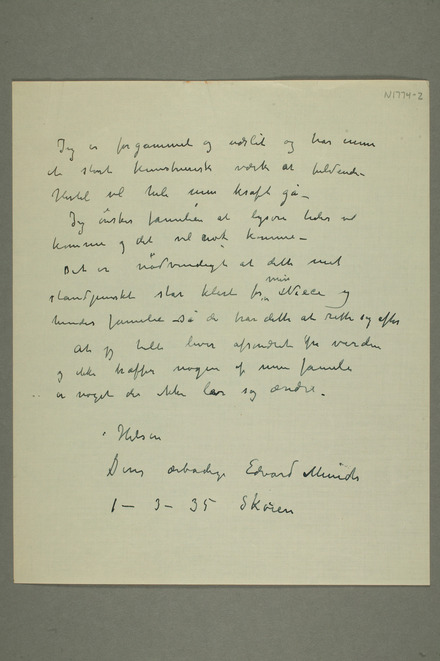 N1774-2
Jeg er for gammel og udslidt og har ennu
et stort kunstnerisk værk at fuldende
Hertil vil hele min kraft gå –
Jeg ønsker familien at lysere tider vil
komme og det vil nok komme –
Det er nødvendigt at dette mit
standpunkt står klart for min Niece og
hendes familie så de har dette at rette sig efter
At jeg lever afsondret fra verden
og ikke træffer nogen af min familie
er noget der ikke lar sig ændre.
Hilsen
Deres ærbødige Edvard Munch
1 – 3 – 35 Skøien